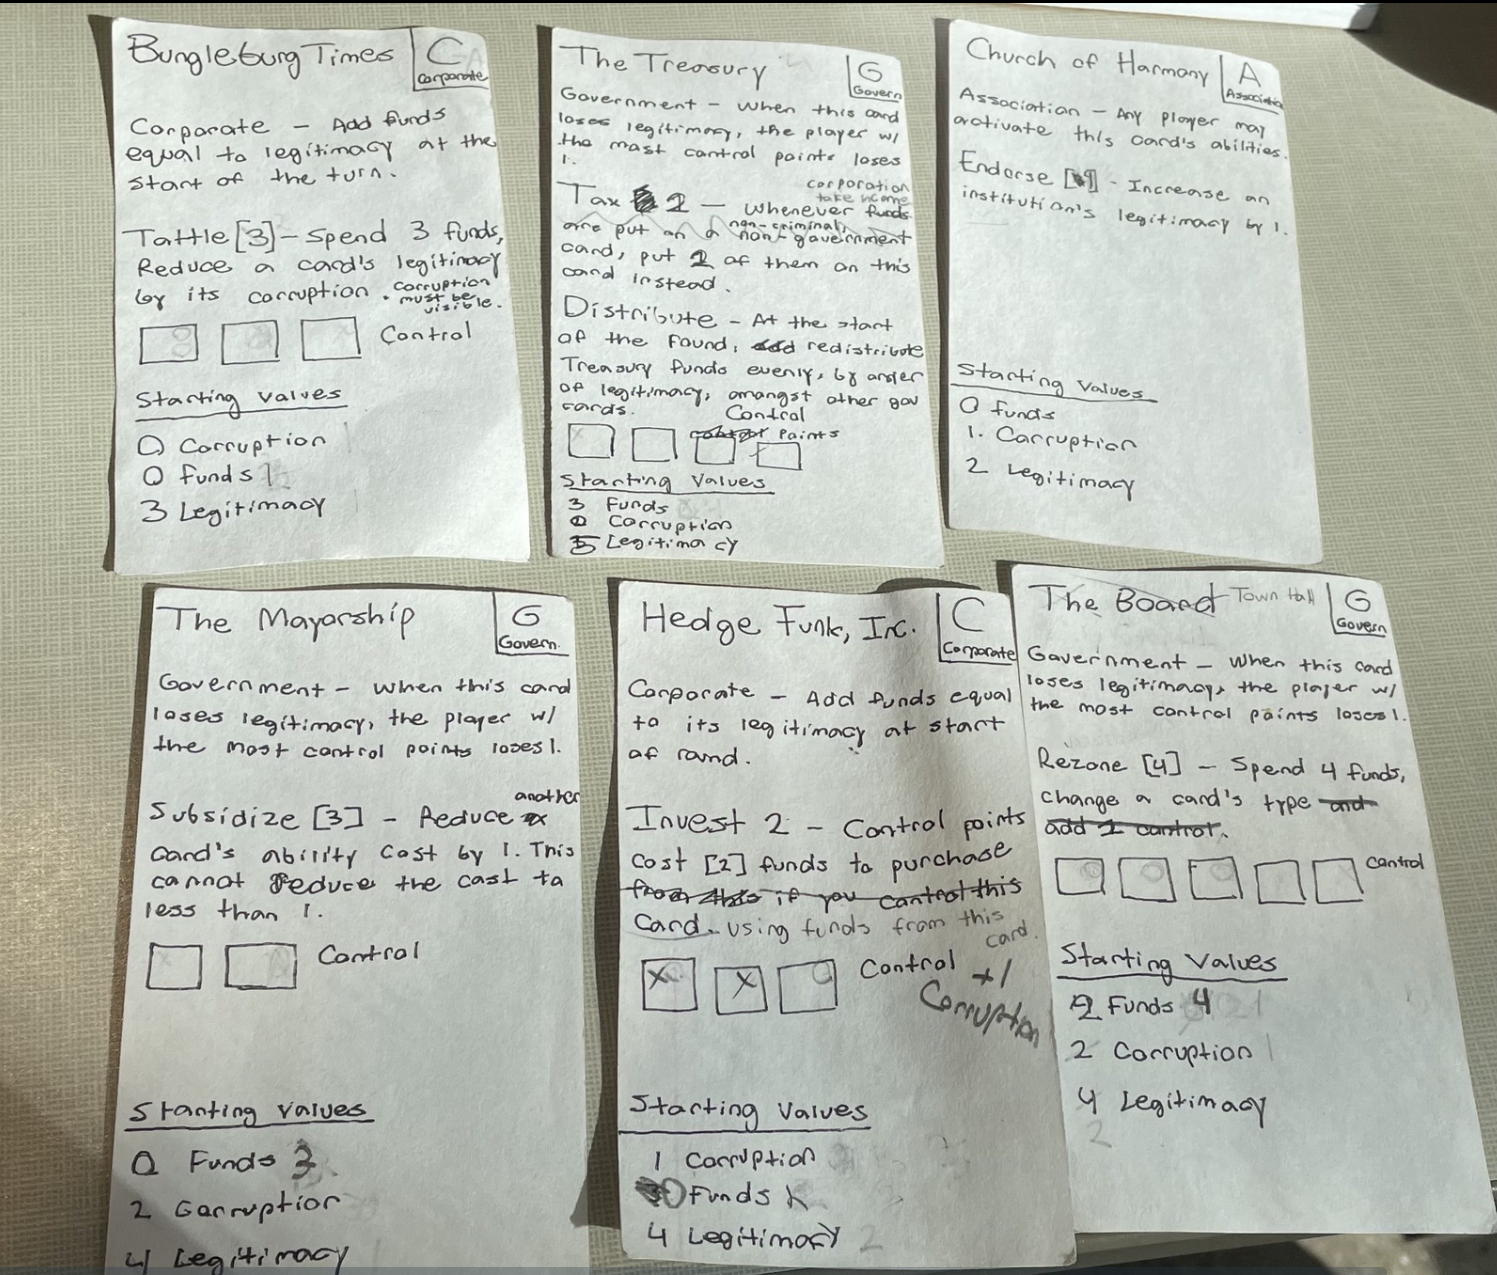 Bungleburg Times
C
Corporate
Corporate - Add funds
equal to legitimacy at the
start of the turn.
Tattle [3] - Spend 3 funds,
Reduce a card's legitimacy
by its corruption. corruption
must be
visible.
Control
Starting values
0 Corruption
0 funds
3 Legitimacy
The Treasury
G
Govern
Government - When this card
loses legitimacy, the player w/
the most control points loses
1.
Tax 2 - Whenever funds
corporation
take income
are put on a non-government
non-criminal,
card, put 2 of them on this
card instead.
Distribute - At the start
of the round, redistribute
Treasury funds evenly, by order
of legitimacy, amongst other gov
cards.
Control
Points
Starting Values
3 Funds
Corruption
5 Legitimacy
Church of Harmony
A
Association - Any player may
activate this card's abilities.
Endorse [ ] - Increase an
institution's legitimacy by 1.
Starting values
0 funds
1. Corruption
2 Legitimacy
The Mayorship
G
Govern.
Government - When this card
loses legitimacy, the player w/
the most control points loses 1.
Subsidize [3] - Reduce another
card's ability cost by 1. This
cannot reduce the cost to
less than 1.
Control
Starting values
0 Funds 3
2 Corruption
4 Legitimacy
Hedge Funk, Inc.
C
Corporate
Corporate - Add funds equal
to its legitimacy at start
of round.
Invest 2 - Control points
cost [2] funds to purchase
from this if you control this
card. using funds from this
card.
X X Control +1
Corruption
Starting values
1 Corruption
0 Funds
4 Legitimacy 2
The Board Town Hall
G
Govern
Government - When this card
loses legitimacy, the player w/
the most control points loses 1.
Rezone [4] - Spend 4 funds,
change a card's type and
add 1 control.
Control
Starting Values
2 Funds 4
2 Corruption 1
4 Legitimacy
2